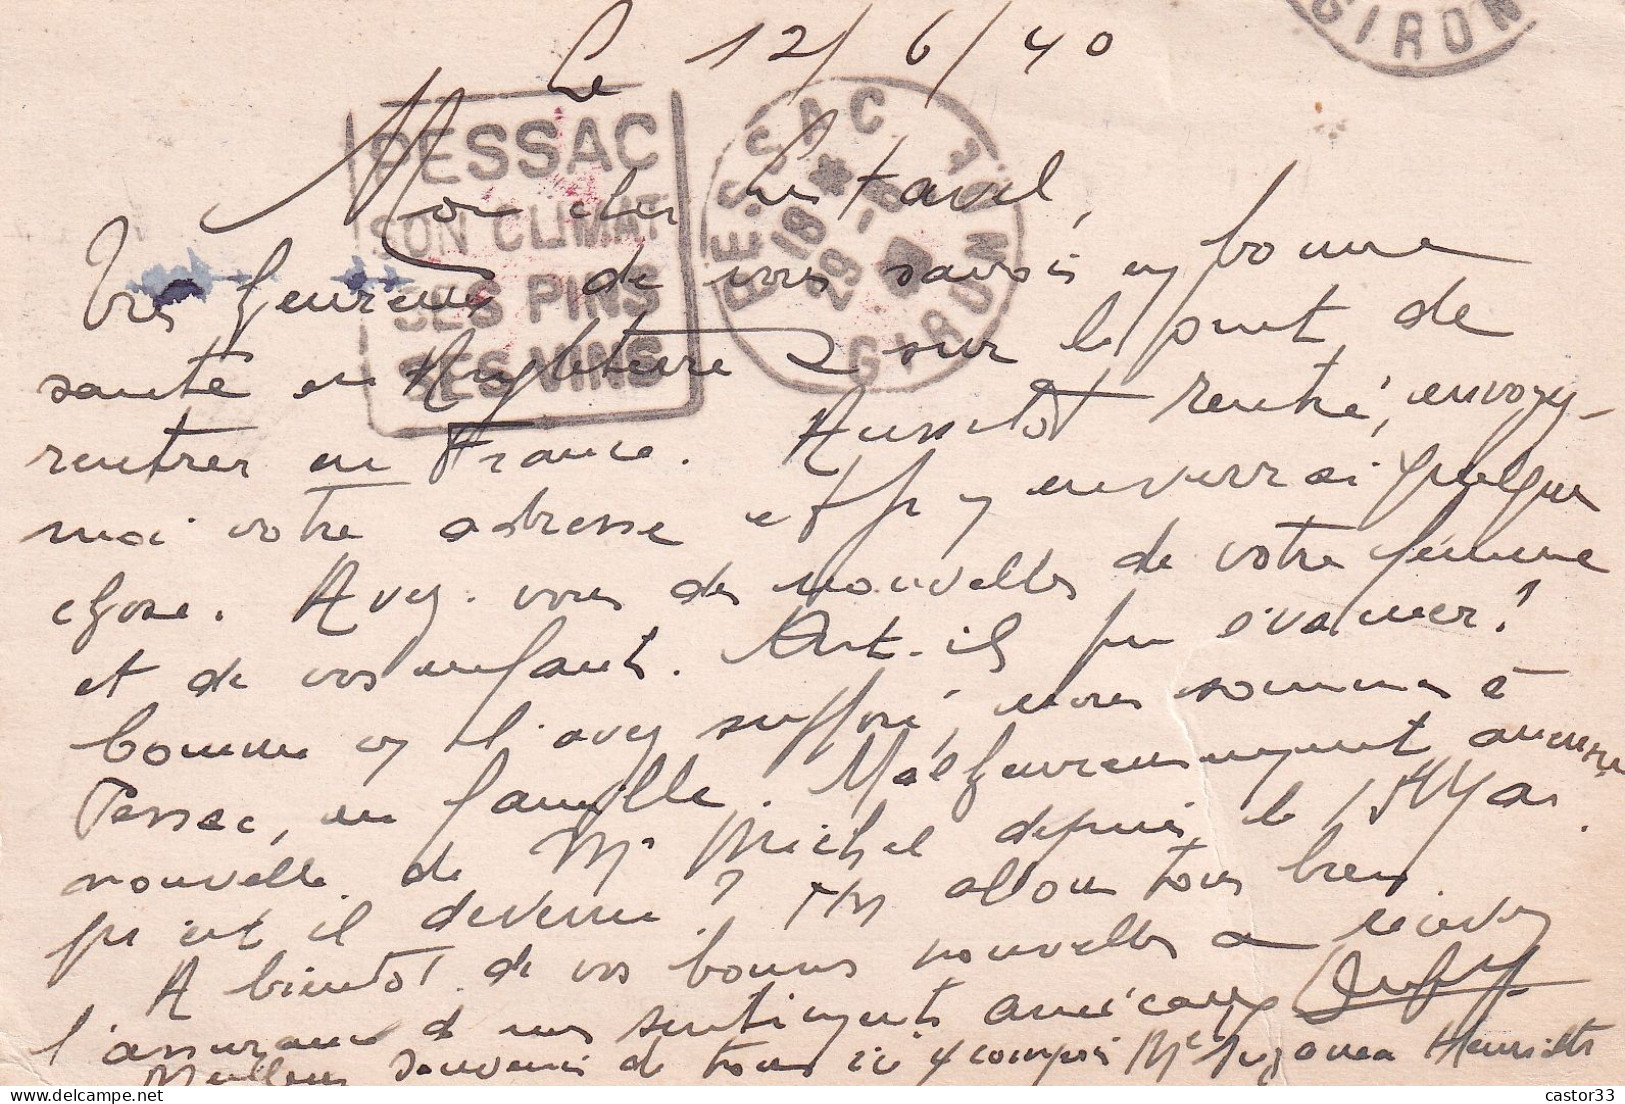 GIRON
Le 12/6/40
PESSAC
SON CLIMAT
SES PINS
SES VINS
PESSAC
18 *
29 - 6
GIRONDE
Mon cher Lestavel,
Très heureux de vous savoir en bonne
santé en Angleterre sur le point de
rentrer en France. Aussitôt rentré, envoyez-
moi votre adresse et je enverrai quelque
chose. Avez-vous des nouvelles de votre femme
et de vos enfants. Ont-ils pu évacuer?
Comme vous l'avez suffoqué, nous sommes à
Pessac, en famille. Malheureusement aucune
nouvelle de Mr Michel depuis le 15 Mai.
qu'est il devenu? Ici allons tous bien.
A bientôt de vos bonnes nouvelles recevez
l'assurance de mes sentiments amicaux
Meilleurs souvenirs de tous ici y compris Me Suzanne Henriette
castor33